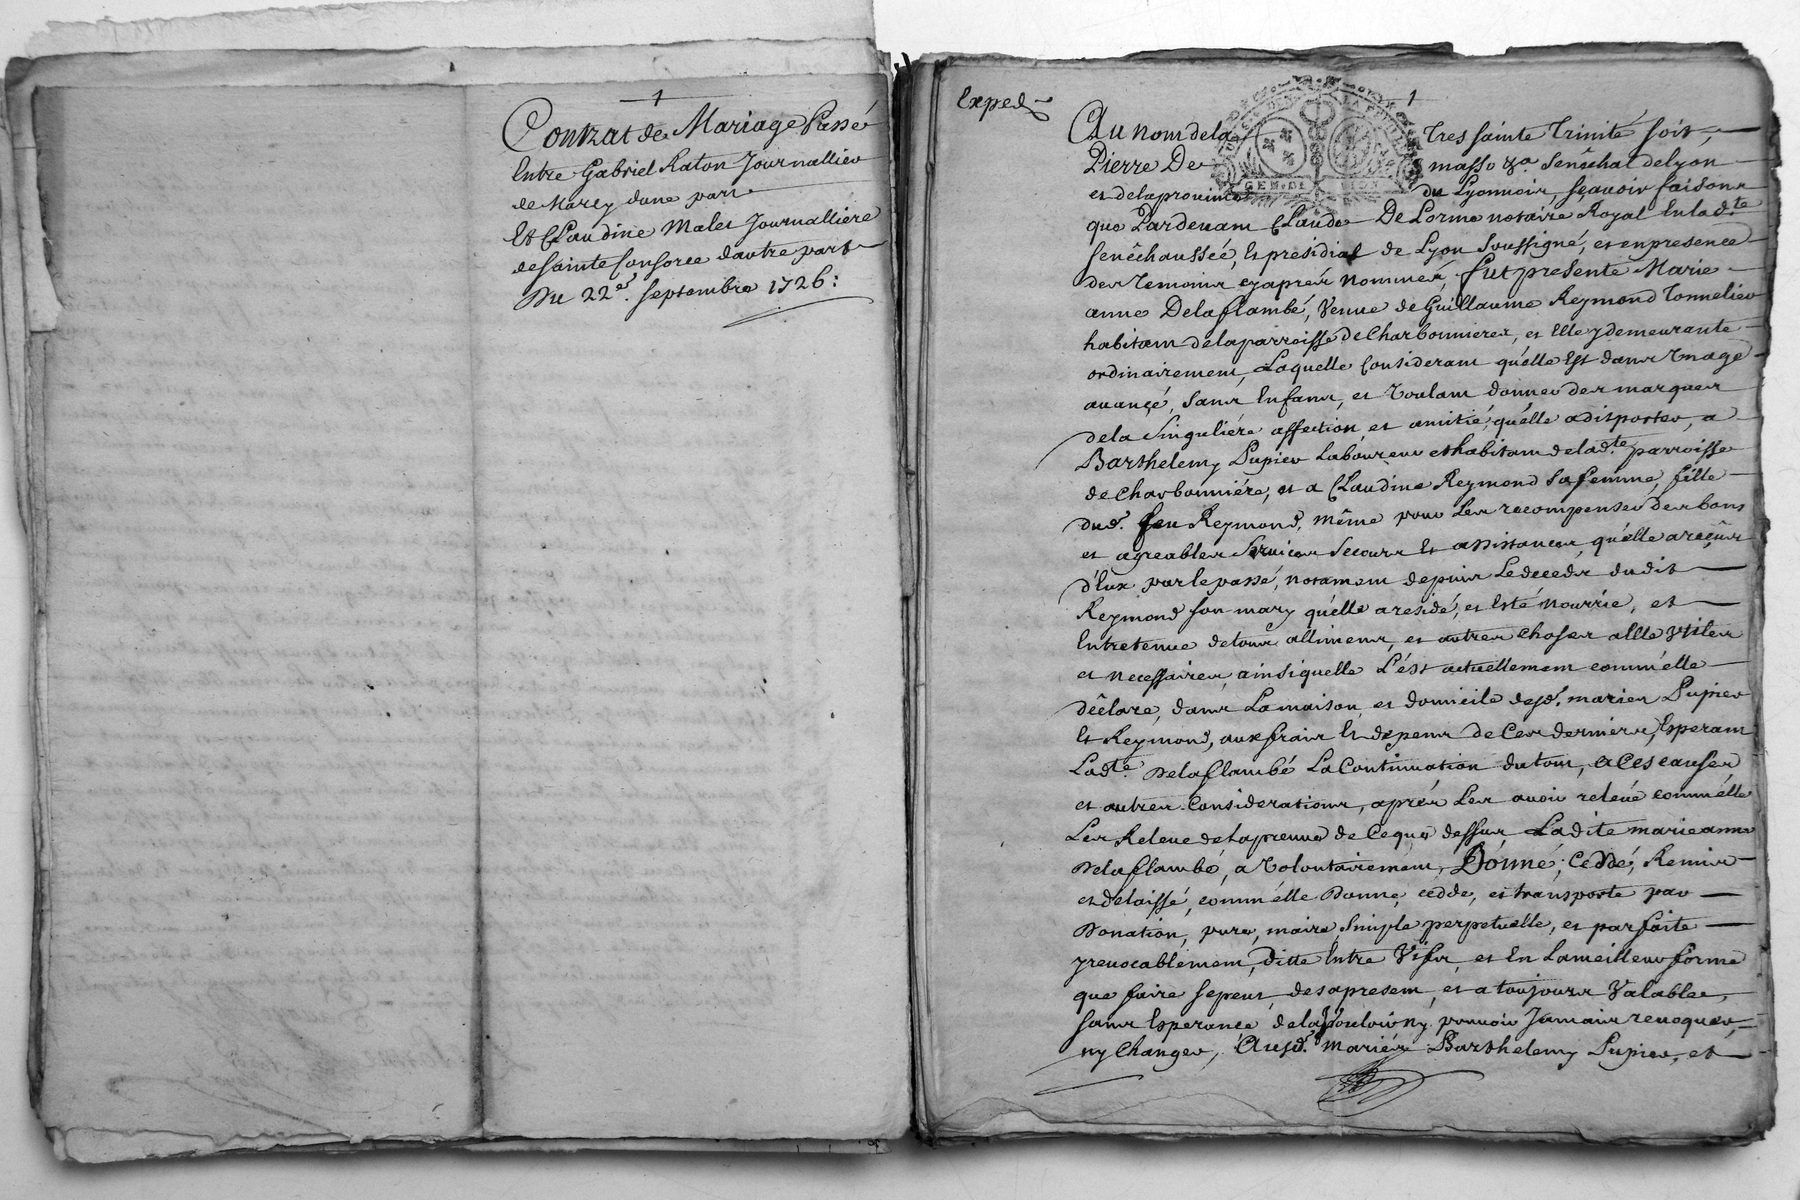 1
Contrat de Mariage Passé
Entre Gabriel Raton Journallier
de Marcy dune part
Et Claudine Malet Journalliere
de Sainte Consorce dautre part
Du 22e. septembre 1726:
Exped
1
Au nom de la Tres sainte Trinité soit,
Pierre De masso &a. Senêchal de Lyon
et de la province du Lyonnois, sçavoir faisons
GEN. DE LION
que Pardevant Claude De Lorme notaire Royal En lad.te
Senêchaussée, Et présidial de Lyon Soussigné, et en presence
des Temoins cy aprés nommes, fut presente Marie
anne Delaflambé, Veuve de Guillaume Reymond Tonnelier
habitant de la parroisse de Charbonnieres, et Elle y demeurante
ordinairement, Laquelle Considerant qu'elle Est dans Un age
avançé, sans Enfans, et Voulant donner des marques
de la Singuliére affection et amitié, qu'elle a dit porter, a
Barthelemy Pupier Laboureur et habitant de lad.te parroisse
de Charbonniére, et a Claudine Reymond Sa femme, fille
dud. feu Reymond, même pour Les recompenser des bons
et agreables Services Secours Et assistances, qu'elle a reçûs
d'Eux par le passé, notament depuis Le decedz dudit
Reymond son mary qu'elle a residé, et Esté nourrie, et
Entretenue de tous allimens, et autres choses a Elle Utiles
et necessaires, ainsi quelle L'est actuellement comm'elle
dêclare, dans La maison et domicile desd. mariés Pupier
Et Reymond, aux frais Et dêpens de Ces derniers, Esperant
Lad.te Delaflambé La Continuation du tout, a Ces causes
et autres Considerations, aprés Les avoir relevé comm'élle
Les Releve de la preuve de Ceque dessus Ladite marie anne
Delaflambé, a Volontairement, Donné, Ceddé, Remis
et delaissé, comm'élle Donne, cedde, et transporte par
Donation, pure, maire, Simple perpetuelle, et parfaite
yrevocablement, ditte Entre Vifs, et En La meilleur forme
que faire se peut, des a present, et a toujours Valable,
sans Esperance de la pouvoir ny. pouvoir Jamais revoquer,
ny Changer, Ausd. mariés Barthelemy Pupier, et